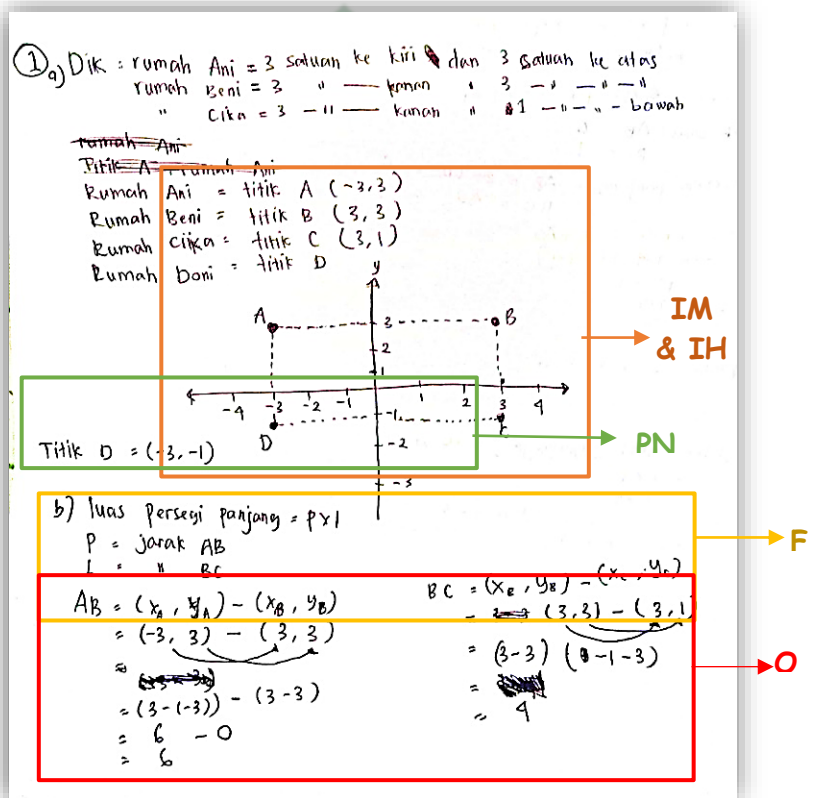 1 a) Dik : rumah Ani = 3 satuan ke kiri dan 3 satuan ke atas
rumah Beni = 3 " — kanan " 3 — " — " — "
" Cika = 3 — " — kanan " 1 — " — " — bawah
rumah Ani
Titik A rumah Ani
Rumah Ani = titik A (-3,3)
Rumah Beni = titik B (3,3)
Rumah Cika = titik C (3,1)
Rumah Doni = titik D
y
A
3
B
2
1
-4 -3 -2 -1 1 2 3 4
-1
D
C
-2
Titik D = (-3,-1)
-3
IM & IH
PN
b) luas persegi panjang = p x l
P = jarak AB
L = " BC
F
AB = (x_A, y_A) - (x_B, y_B)
= (-3, 3) - (3, 3)
=
= (3-(-3)) - (3-3)
= 6 - 0
= 6
BC = (x_B, y_B) - (x_C, y_C)
= (3,3) - (3,1)
= (3-3) (-1-3)
=
= 4
O